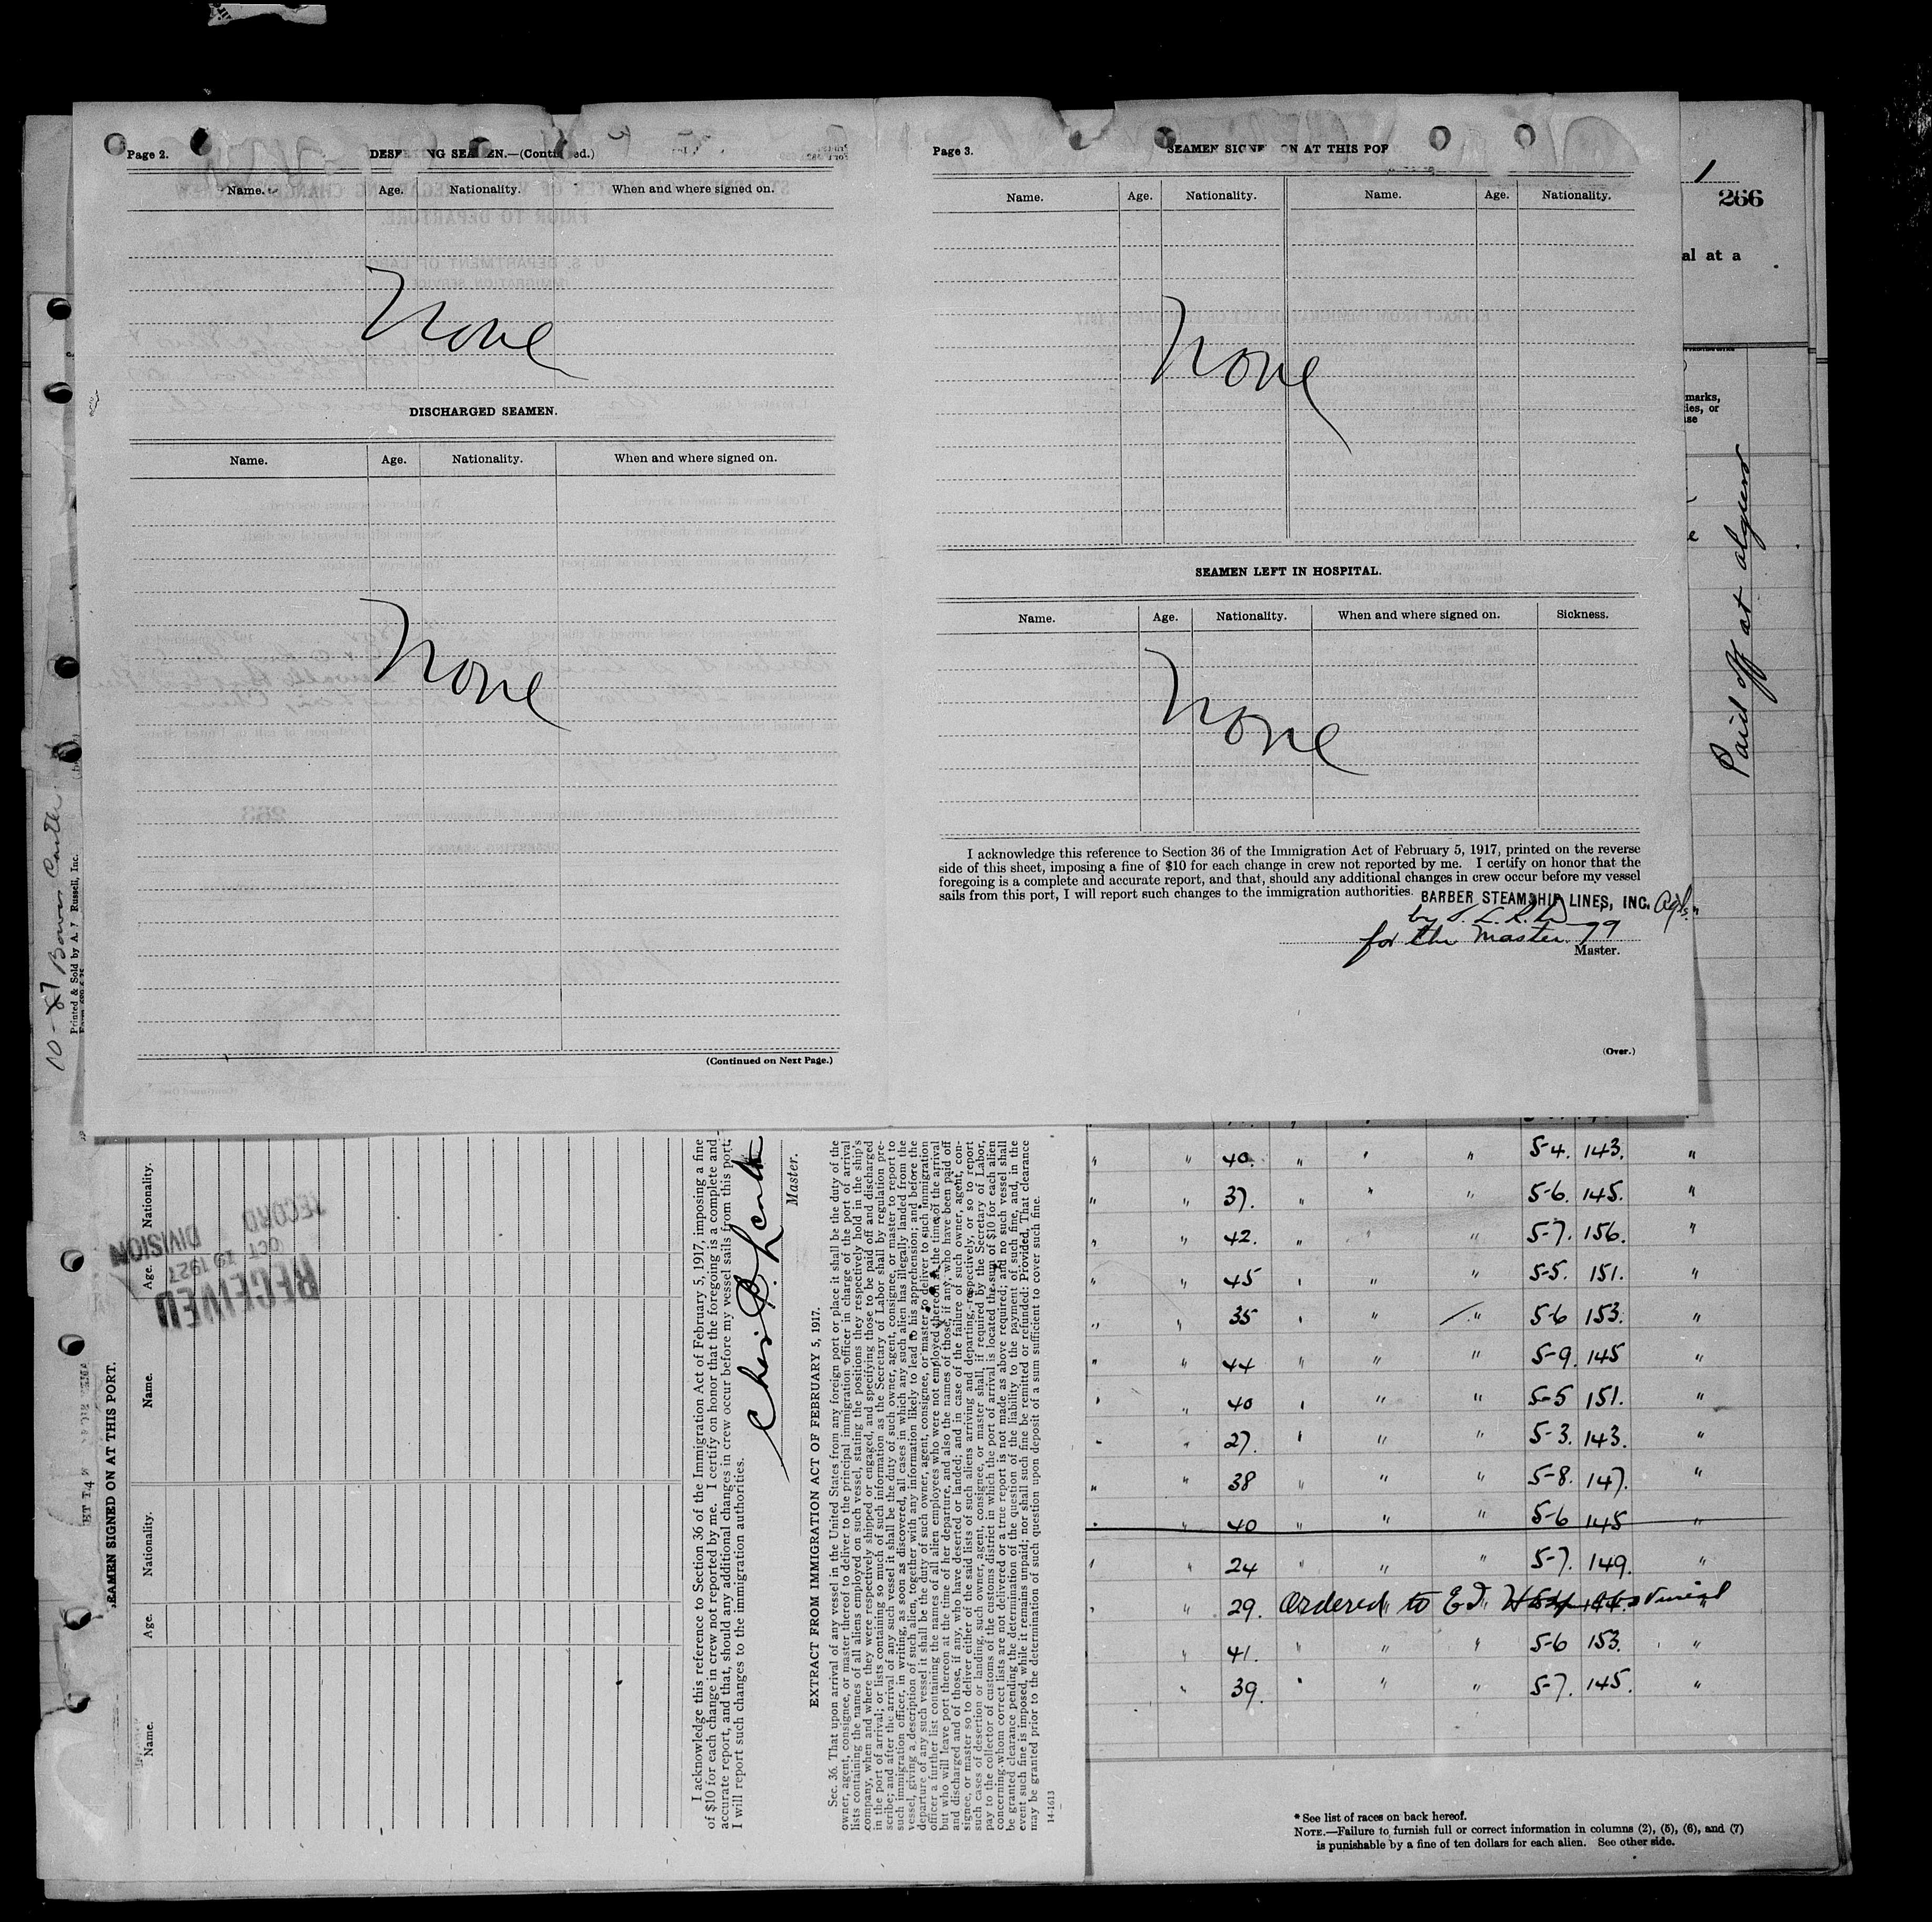 Page 2.
DESERTING SEAMEN.—(Continued.)
Name. Age. Nationality. When and where signed on.
None
DISCHARGED SEAMEN.
Name. Age. Nationality. When and where signed on.
None
(Continued on Next Page.)
Page 3.
SEAMEN SIGNED ON AT THIS POR
Name. Age. Nationality. Name. Age. Nationality.
None
SEAMEN LEFT IN HOSPITAL.
Name. Age. Nationality. When and where signed on. Sickness.
None
I acknowledge this reference to Section 36 of the Immigration Act of February 5, 1917, printed on the reverse
side of this sheet, imposing a fine of $10 for each change in crew not reported by me. I certify on honor that the
foregoing is a complete and accurate report, and that, should any additional changes in crew occur before my vessel
sails from this port, I will report such changes to the immigration authorities.
BARBER STEAMSHIP LINES, INC. Agts.
by
for the Master
Master.
(Over.)
1
266
al at a
marks,
ies, or
se
Paid off at
10-27 Bowes Castle
Printed & Sold by A. Russell, Inc.
EAMEN SIGNED ON AT THIS PORT.
Name. Age. Nationality. Name. Age. Nationality.
RECEIVED
OCT 19 1927
RECORD DIVISION
I acknowledge this reference to Section 36 of the Immigration Act of February 5, 1917, imposing a fine
of $10 for each change in crew not reported by me. I certify on honor that the foregoing is a complete and
accurate report, and that, should any additional changes in crew occur before my vessel sails from this port,
I will report such changes to the immigration authorities.
Master.
EXTRACT FROM IMMIGRATION ACT OF FEBRUARY 5, 1917.
Sec. 36. That upon arrival of any vessel in the United States from any foreign port or place it shall be the duty of the
owner, agent, consignee, or master thereof to deliver to the principal immigration officer in charge of the port of arrival
lists containing the names of all aliens employed on such vessel, stating the positions they respectively hold in the ship's
company, when and where they were respectively shipped or engaged, and specifying those to be paid off and discharged
in the port of arrival; or lists containing so much of such information as the Secretary of Labor shall by regulation pre-
scribe; and after the arrival of any such vessel it shall be the duty of such owner, agent, consignee, or master to report to
such immigration officer, in writing, as soon as discovered, all cases in which any such alien has illegally landed from the
vessel, giving a description of such alien, together with any information likely to lead to his apprehension; and before the
departure of any such vessel it shall be the duty of such owner, agent, consignee, or master to deliver to such immigration
officer a further list containing the names of all alien employees who were not employed thereon at the time of the arrival
but who will leave port thereon at the time of her departure, and also the names of those, if any, who have been paid off
and discharged and of those, if any, who have deserted or landed; and in case of the failure of such owner, agent, con-
signee, or master so to deliver either of the said lists of such aliens arriving and departing, respectively, or so to report
such cases of desertion or landing, such owner, agent, consignee, or master shall, if required by the Secretary of Labor,
pay to the collector of customs of the customs district in which the port of arrival is located the sum of $10 for each alien
concerning whom correct lists are not delivered or a true report is not made as above required; and no such vessel shall
be granted clearance pending the determination of the question of the liability to the payment of such fine, and, in the
event such fine is imposed, while it remains unpaid; nor shall such fine be remitted or refunded: Provided, That clearance
may be granted prior to the determination of such question upon deposit of a sum sufficient to cover such fine.
14-1613
" " 40. " " " 5-4. 143. "
" " 37. " " " 5-6. 145. "
" " 42. " " " 5-7. 156. "
" " 45 " " " 5-5. 151. "
" " 35 " " " 5-6 153. "
" " 44 " " " 5-9. 145 "
" " 40 " " " 5-5 151. "
" " 27. " " " 5-3. 143. "
" " 38 " " " 5-8. 147. "
" " 40 " " " 5-6 145 "
" " 24 " " " 5-7. 149. "
" " 29. Ordered to
" 41. " " " 5-6 153. "
" 39. " " " 5-7. 145. "
* See list of races on back hereof.
NOTE.—Failure to furnish full or correct information in columns (2), (5), (6), and (7)
is punishable by a fine of ten dollars for each alien. See other side.